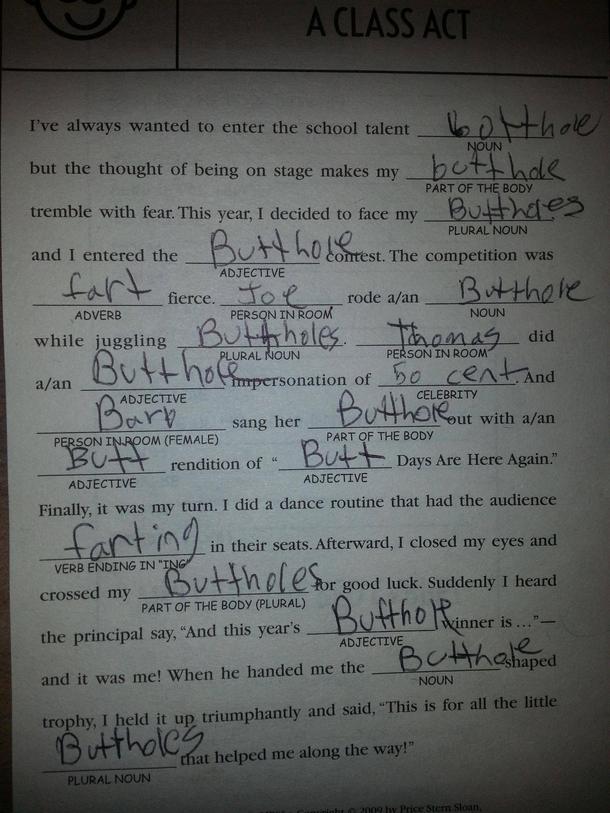 A CLASS ACT
I've always wanted to enter the school talent butthole
NOUN
but the thought of being on stage makes my butthole
PART OF THE BODY
tremble with fear. This year, I decided to face my Buttholes
PLURAL NOUN
and I entered the Butthole contest. The competition was
ADJECTIVE
fart fierce. Joe rode a/an Butthole
ADVERB PERSON IN ROOM NOUN
while juggling Buttholes. Thomas did
PLURAL NOUN PERSON IN ROOM
a/an Butthole impersonation of 50 cent. And
ADJECTIVE CELEBRITY
Barb sang her Butthole out with a/an
PERSON IN ROOM (FEMALE) PART OF THE BODY
Butt rendition of "Butt Days Are Here Again."
ADJECTIVE ADJECTIVE
Finally, it was my turn. I did a dance routine that had the audience
farting in their seats. Afterward, I closed my eyes and
VERB ENDING IN "ING"
crossed my Buttholes for good luck. Suddenly I heard
PART OF THE BODY (PLURAL)
the principal say, "And this year's Butthole winner is ..."—
ADJECTIVE
and it was me! When he handed me the Butthole shaped
NOUN
trophy, I held it up triumphantly and said, "This is for all the little
Buttholes that helped me along the way!"
PLURAL NOUN
Copyright © 2009 by Price Stern Sloan,